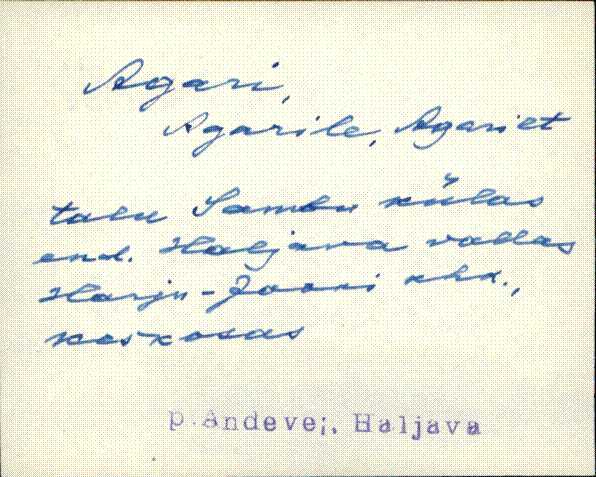 Agari,
Agarile, Agarist
talu Sambu külas
end. Haljava vallas
Harju-Jaani khk.,
keskosas
p.Andevei, Haljava